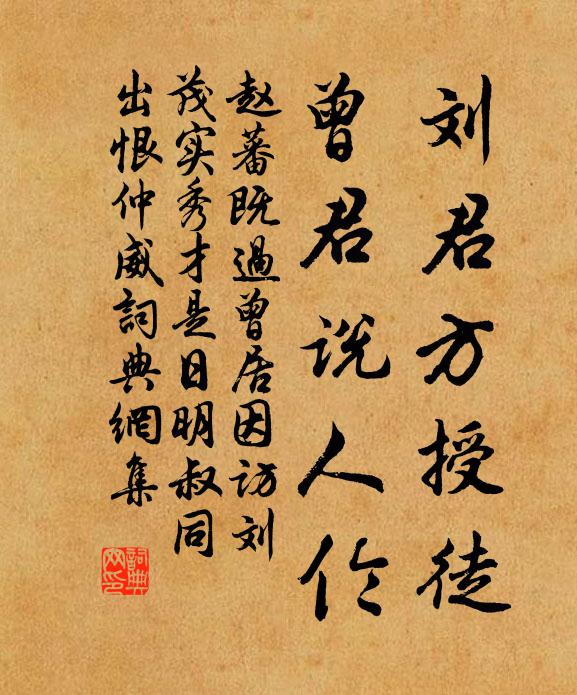 刘君方授徒
曾君说人伦
赵蕃既過曾居因访刘
茂实秀才是日明叔同
出恨仲威詞典網集
詞典网印